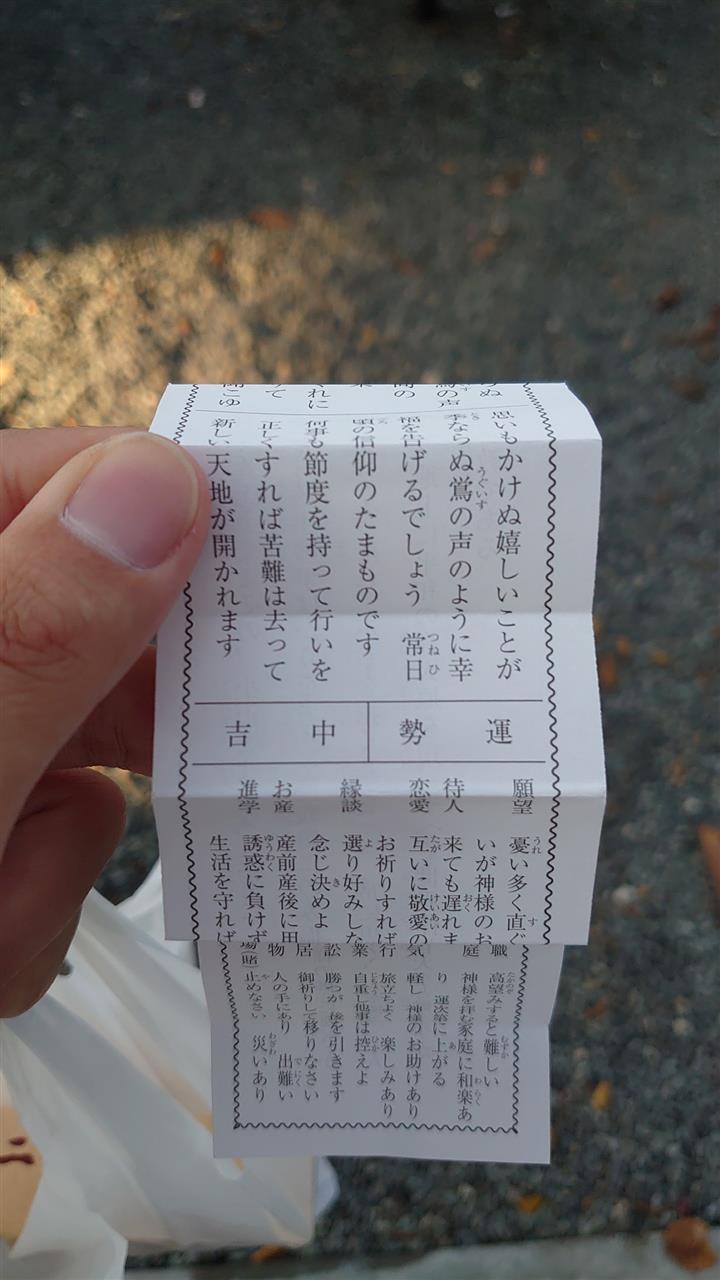 思いもかけぬ嬉しいことが
季ならぬ鴬の声のように幸
福を告げるでしょう 常日
頃の信仰のたまものです
何事も節度を持って行いを
正しくすれば苦難は去って
新しい天地が開かれます
運勢 中吉
願望 憂い多く直ぐ
いが神様のお
待人 来ても遅れま
恋愛 互いに敬愛の
お祈りすれば
縁談 選り好みした
念じ決めよ
お産 産前産後に
進学 誘惑に負けず
生活を守れば
職 高望みすると難しい
庭 神様を拝む家庭に和楽あ
り 運次第に上がる
気 軽し 神様のお助けあり
行 旅立ちよく 楽しみあり
業 自重し他事は控えよ
訟 勝つが 後を引きます
居 御祈りして移りなさい
物 人の手にあり 出難い
止めなさい 災いあり